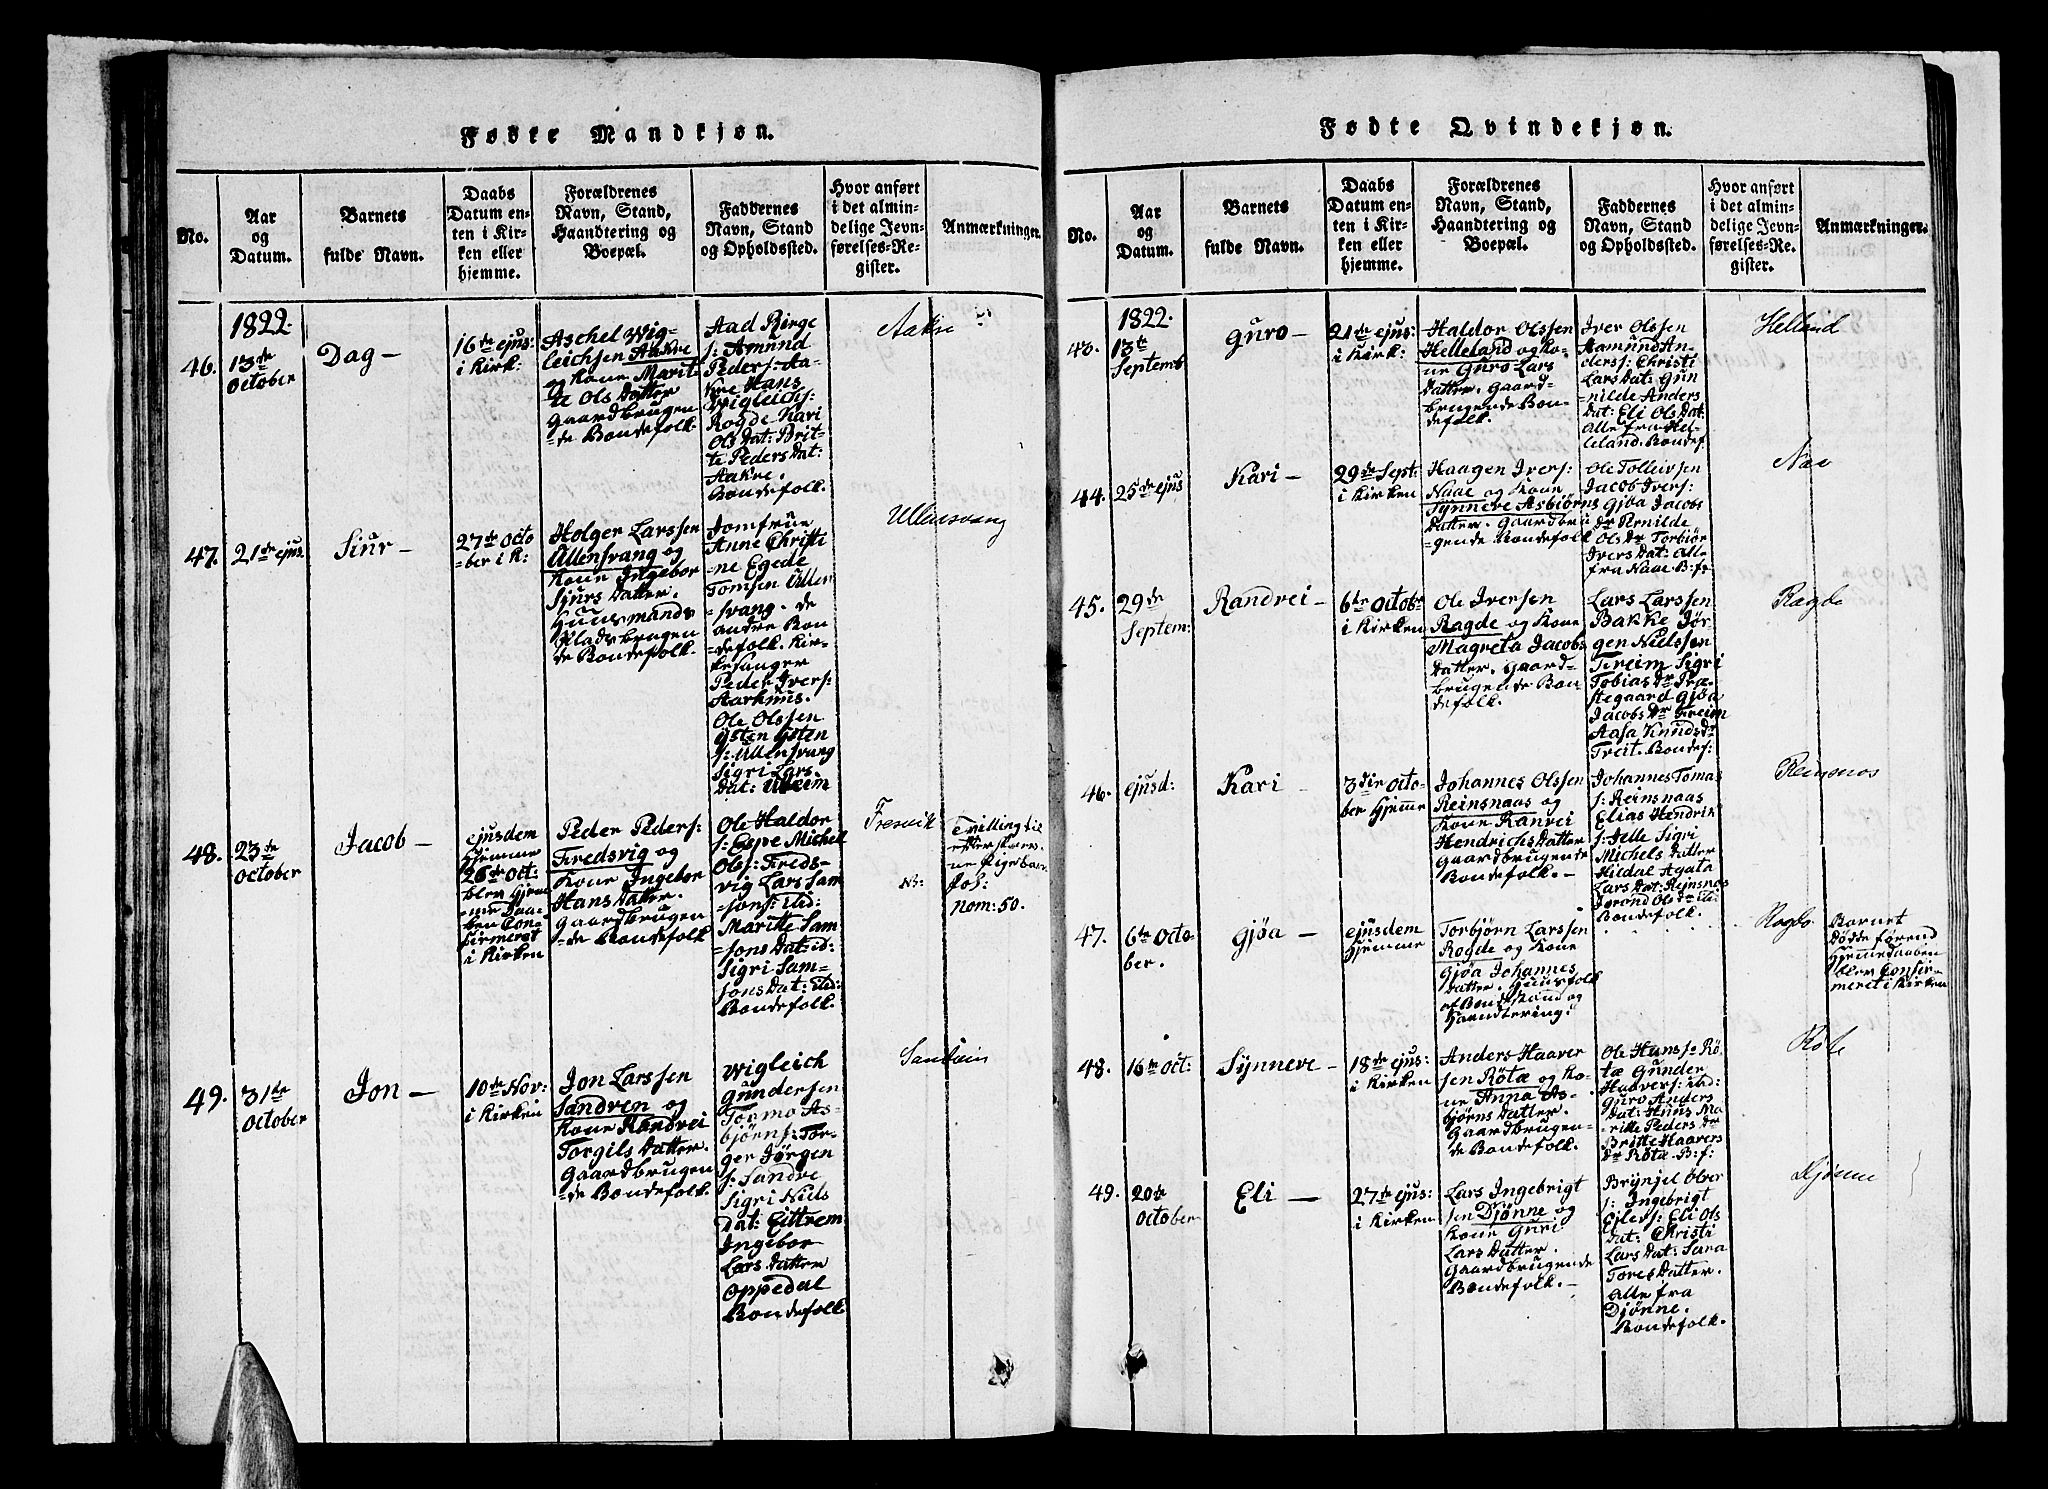 Fødte Mandkjøn.
No.
Aar
og
Datum.
Barnets
fulde Navn.
Daabs
Datum en-
ten i Kir-
ken eller
hjemme.
Forældrenes
Navn, Stand,
Haandtering og
Boepæl.
Faddernes
Navn, Stand
og Opholdssted.
Hvor anført
i det almin-
delige Jevn-
førelses-Re-
gister.
Anmærkninger.
1822.
46.
13de
October
Dag —
16de ejus:
i Kirk:
Aschel Wig-
leichsen Aakre
og Kone Marit-
te Ols Datter
Gaardbrugen
=de Bondefolk.
Aad Ringe
s: Amund
Peders: Aa-
kre Hans
Wigleichs:
Rogde Kari
Ols Dat: Brit-
te Peders Dat:
Aakre.
Bondefolk.
Aakre
47.
21de ejus.
Siur —
27de Octo
=ber i K:
Holger Larssen
Ullensvang og
Kone Ingebor
Sjurs Datter.
Huusmands
Pladsbrugen
de Bondefolk.
Jomfrue
Anne Christi
=ne Egede
Tomsen Ullen
=svang. de
andre Bon
=defolk. Kir-
kesanger
Peder Ivers:
Aarhuus.
Ole Olssen
Østen Østen
s: Ullensvang
Sigri Lars
Dat: Ulleim
Ullensvang
48.
23de
October
Jacob —
ejusdem
Hjemme
26de Oct:
blev Hjem
=me Daa-
ben Con-
firmeret
i Kirken
Peder Peders:
Fredsvig og
Kone Ingebor
Hans Datter.
Gaardbrugen
=de Bondefolk
Ole Haldor
s: Espe Michel
Ols: Freds-
vig Lars Sam
=sons: ibid:
Maritte Sam
sons Dat: id:
Sigri Sam=
sons Dat: ibid:
Bondefolk.
Fresvik
N:
Tvilling til
efterskrev-
ne Pigebarn
Fol:
Nom: 50.
49.
31de
October
Jon —
10de Nov:
i Kirken
Jon Larssen
Sandven og
Kone Randvei
Torgils Datter.
Gaardbrugen
=de Bondefolk.
Wigleich
Gundersen
Tormo As-
bjørns: Tor-
ger Jørgen
s: Sandve
Sigri Niels
Dat: Eittrem
Ingebor
Lars Datter
Oppedal
Bondefolk
Sandven
Fødte Qvindekjøn.
No.
Aar
og
Datum.
Barnets
fulde Navn.
Daabs
Datum en-
ten i Kir-
ken eller
hjemme.
Forældrenes
Navn, Stand,
Haandtering og
Boepæl.
Faddernes
Navn, Stand
og Opholdssted.
Hvor anført
i det almin-
delige Jevn-
førelses-Re-
gister.
Anmærkninger.
1822.
43.
13de
Septemb
Guro —
21de ejus:
i Kirk:
Haldor Olssen
Helleland og Ko-
ne Guro Lars
Datter. Gaard-
brugende Bon-
defolk.
Iver Olssen
Aamund An-
derss: Christi
Lars Dat: Gun
=nilde Anders
Dat: Eli Ols Dat:
Alle fra Hel-
leland. Bondef.
Helland
44.
25de ejus
Kari —
29de Sept:
i Kirken
Haagen Ivers:
Naae og Kone
Synneve Asbjørns
Datter. Gaardbru
=gende Bondefolk
Ole Tolleivsen
Jacob Ivers:
Gjøa Jacobs
Dr Arnilde
Ols Dr Torbjør
Ivers Dat: Alle
fra Naae B:f:
Nae
45.
29de
Septem:
Randvei —
6te Octobr
i Kirken
Ole Iversen
Ragde og Kone
Magreta Jacobs
Datter. Gaard-
brugende Bon
defolk.
Lars Larssen
Bakke Jør
gen Nielssen
Freim Sigri
Tobias Dr Præ-
stegaard Gjøa
Jacobs Dr Freim
Aasa Knuds Dr
Freit. Bondef:
Ragde
46.
ejusd:
Kari —
3die Octo-
ber Hjemme
Johannes Olssen
Reinsnaas og
Kone Ranvei
Hendrichs Datter
Gaardbrugende
Bondefolk. —
Johannes Tomas
s: Reinsnaas
Elias Hendrik
s: Jelle Sigri
Michels Datter
Hildal Agata
Lars Dat: Reinsnos
Jorond Ols Dr ibi:
Bondefolk.
Reinsnos
47.
6te Octo-
ber.
Gjøa —
ejusdem
Hjemme
Torbjørn Larssen
Rogde og Kone
Gjøa Johannes
Datter. Huusfolk
af Bondestand og
Haandtering.
Ragde
Barnet
Døde førend
Hjemedaaben
blev Confir-
meret i Kirken
48.
16de Oct:
Synneve —
18de ejus:
i Kirken
Anders Haaver
sen Røtæ og Ko-
ne Anna As-
bjørns Datter.
Gaardbrugen-
de Bondefolk.
Ole Hanss: Rø-
tæ Gunder
Haavers: ibid:
Guro Anders
Dat: Huus Ma
ritte Peders Dr
Britte Haavers
Dr Røtæ. B:f:
Røte
49.
20de
October
Eli —
27de ejus:
i Kirken
Lars Ingebrigt
sen Djønne og
Kone Guri
Lars Datter.
Gaardbrugende
Bondefolk. —
Brynjel Olver
s: Ingebrigt
Ejlers: Eli Ols
Dat: Christi
Lars Dat: Sara
Tores Datter.
Alle fra
Djønne.
Bondefolk.
Djønne